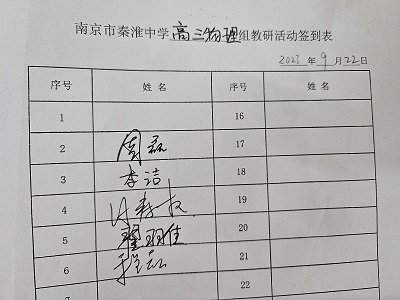 南京市秦淮中学高三物理组教研活动签到表
2023 年 9 月 22 日
序号 姓名 序号 姓名
1 16
2 周磊 17
3 李洁 18
4 19
5 翟羽佳 20
6 程磊 21
22